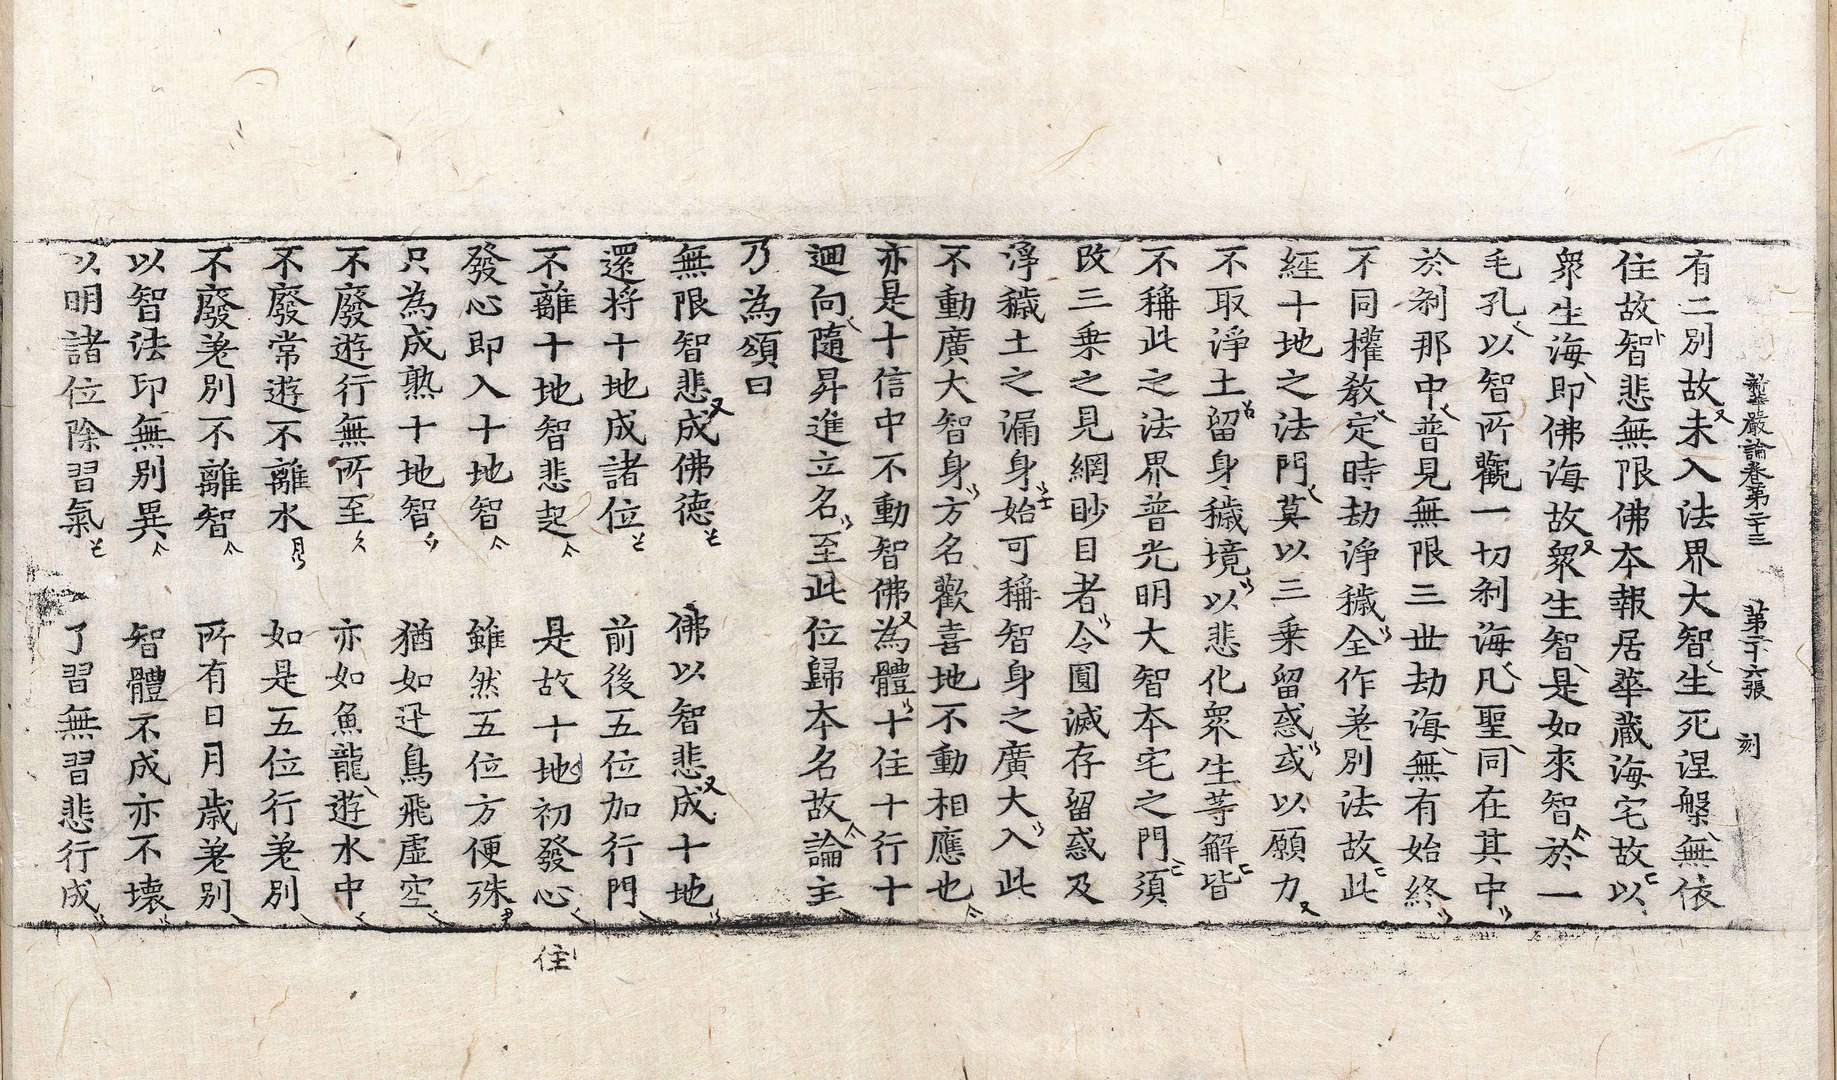 新華嚴論卷第二十三 第二十六張 刻
有二別故未入法界大智生死涅槃無依
住故智悲無限佛本報居華藏海宅故以
衆生海即佛海故衆生智是如來智於一
毛孔以智所觀一切刹海凡聖同在其中
於刹那中普見無限三世劫海無有始終
不同權教定時劫淨穢全作差別法故此
經十地之法門莫以三乗留惑或以願力
不取淨土留身穢境以悲化衆生等解皆
不稱此之法界普光明大智本宅之門須
改三乗之見網眇目者令圓滅存留惑及
淨穢土之漏身始可稱智身之廣大入此
不動廣大智身方名歡喜地不動相應也
亦是十信中不動智佛為體十住十行十
迴向隨昇進立名至此位歸本名故論主
乃為頌曰
無限智悲成佛德 佛以智悲成十地
還將十地成諸位 前後五位加行門
不離十地智悲起 是故十地初發心
住
發心即入十地智 雖然五位方便殊
只為成熟十地智 猶如迅鳥飛虛空
不廢遊行無所至 亦如魚龍遊水中
不廢常遊不離水 如是五位行差別
不廢差別不離智 所有日月歲差別
以智法印無別異 智體不成亦不壞
以明諸位除習氣 了習無習悲行成